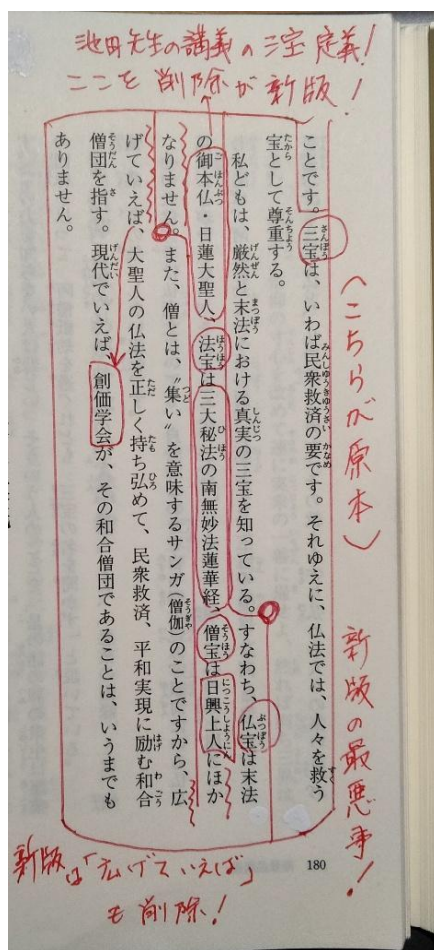 池田先生の講義の三宝定義!
ここを削除が新版!
ことです。三宝は、いわば民衆救済の要です。それゆえに、仏法では、人々を救う
宝として尊重する。
私どもは、厳然と末法における真実の三宝を知っている。すなわち、仏宝は末法
の御本仏・日蓮大聖人、法宝は三大秘法の南無妙法蓮華経、僧宝は日興上人にほか
なりません。また、僧とは、〝集い〟を意味するサンガ(僧伽)のことですから、広
げていえば、大聖人の仏法を正しく持ち弘めて、民衆救済、平和実現に励む和合
僧団を指す。現代でいえば、創価学会が、その和合僧団であることは、いうまでも
ありません。
(こちらが原本)
新版の最悪事!
180
新版は「広げていえば」
も削除!